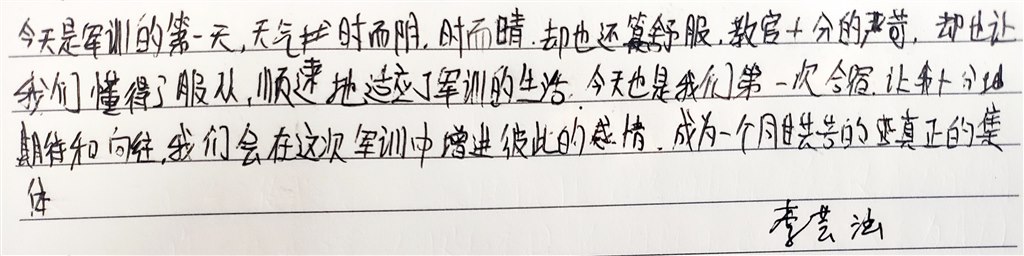 今天是军训的第一天,天气时而阴,时而晴.却也还算舒服,教官十分的严苛,却也让
我们懂得了服从,顺速地适应了军训的生活.今天也是我们第一次合宿,让我十分地
期待和向往,我们会在这次军训中增进彼此的感情.成为一个同甘共苦的真正的集
体
李芸